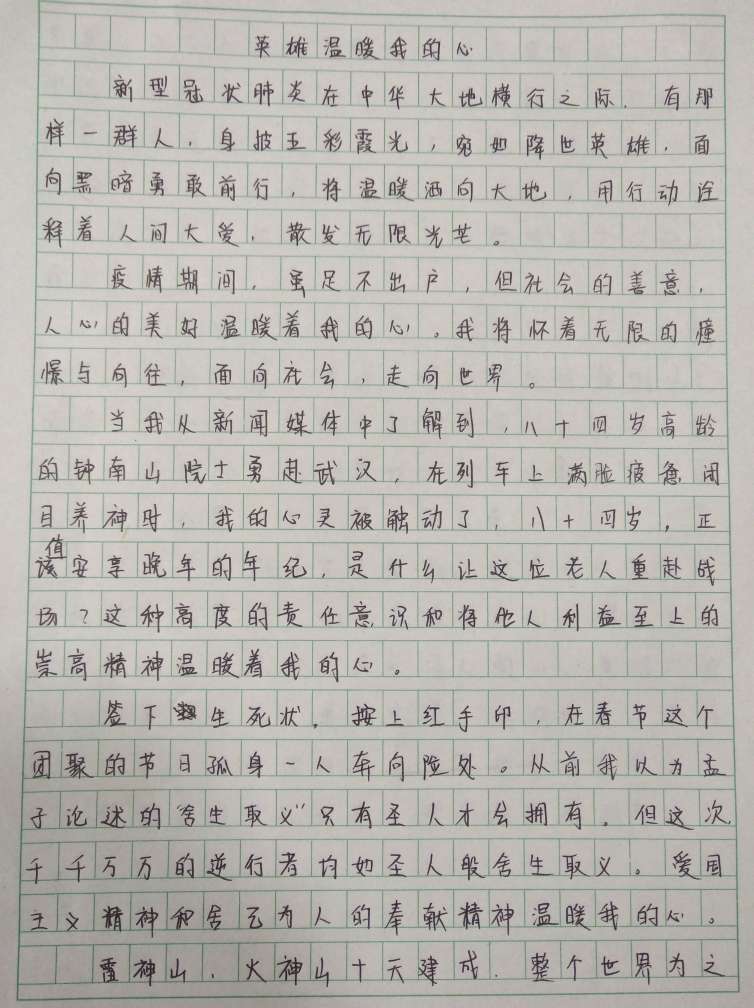 英雄温暖我的心
新型冠状肺炎在中华大地横行之际，有那
样一群人，身披五彩霞光，宛如降世英雄，面
向黑暗勇敢前行，将温暖洒向大地，用行动诠
释着人间大爱，散发无限光芒。
疫情期间，虽足不出户，但社会的善意，
人心的美好温暖着我的心。我将怀着无限的憧
憬与向往，面向社会，走向世界。
当我从新闻媒体中了解到，八十四岁高龄
的钟南山院士勇赴武汉，在列车上满脸疲惫闭
目养神时，我的心灵被触动了，八十四岁，正
值
该安享晚年的年纪，是什么让这位老人重赴战
场？这种高度的责任意识和将他人利益至上的
崇高精神温暖着我的心。
签下生死状，按上红手印，在春节这个
团聚的节日孤身一人奔向险处。从前我以为孟
子论述的“舍生取义”只有圣人才会拥有，但这次，
千千万万的逆行者均如圣人般舍生取义。爱国
主义精神和舍己为人的奉献精神温暖我的心。
雷神山，火神山十天建成，整个世界为之